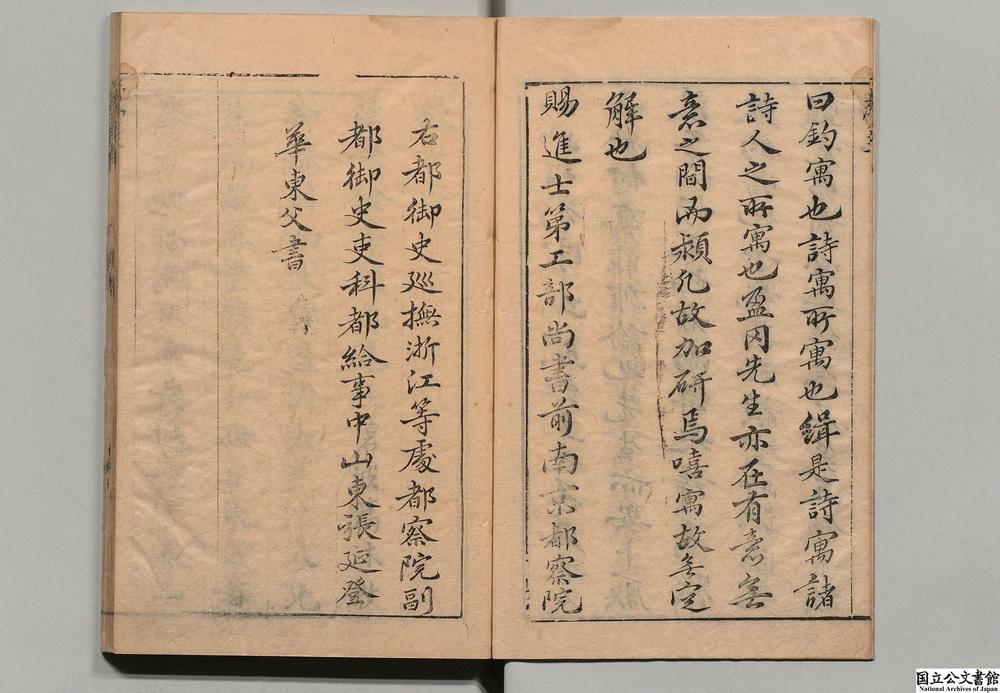 曰釣寓也詩寓所寓也緝是詩寓諸
詩人之所寓也盈冈先生亦在有意無
意之間而頫凡故加研焉嘻寓故無定
解也
賜進士第工部尚書前南京都察院
右都御史廵撫浙江等處都察院副
都御史吏科都給事中山東張延登
華東父書
国立公文書館
National Archives of Japan